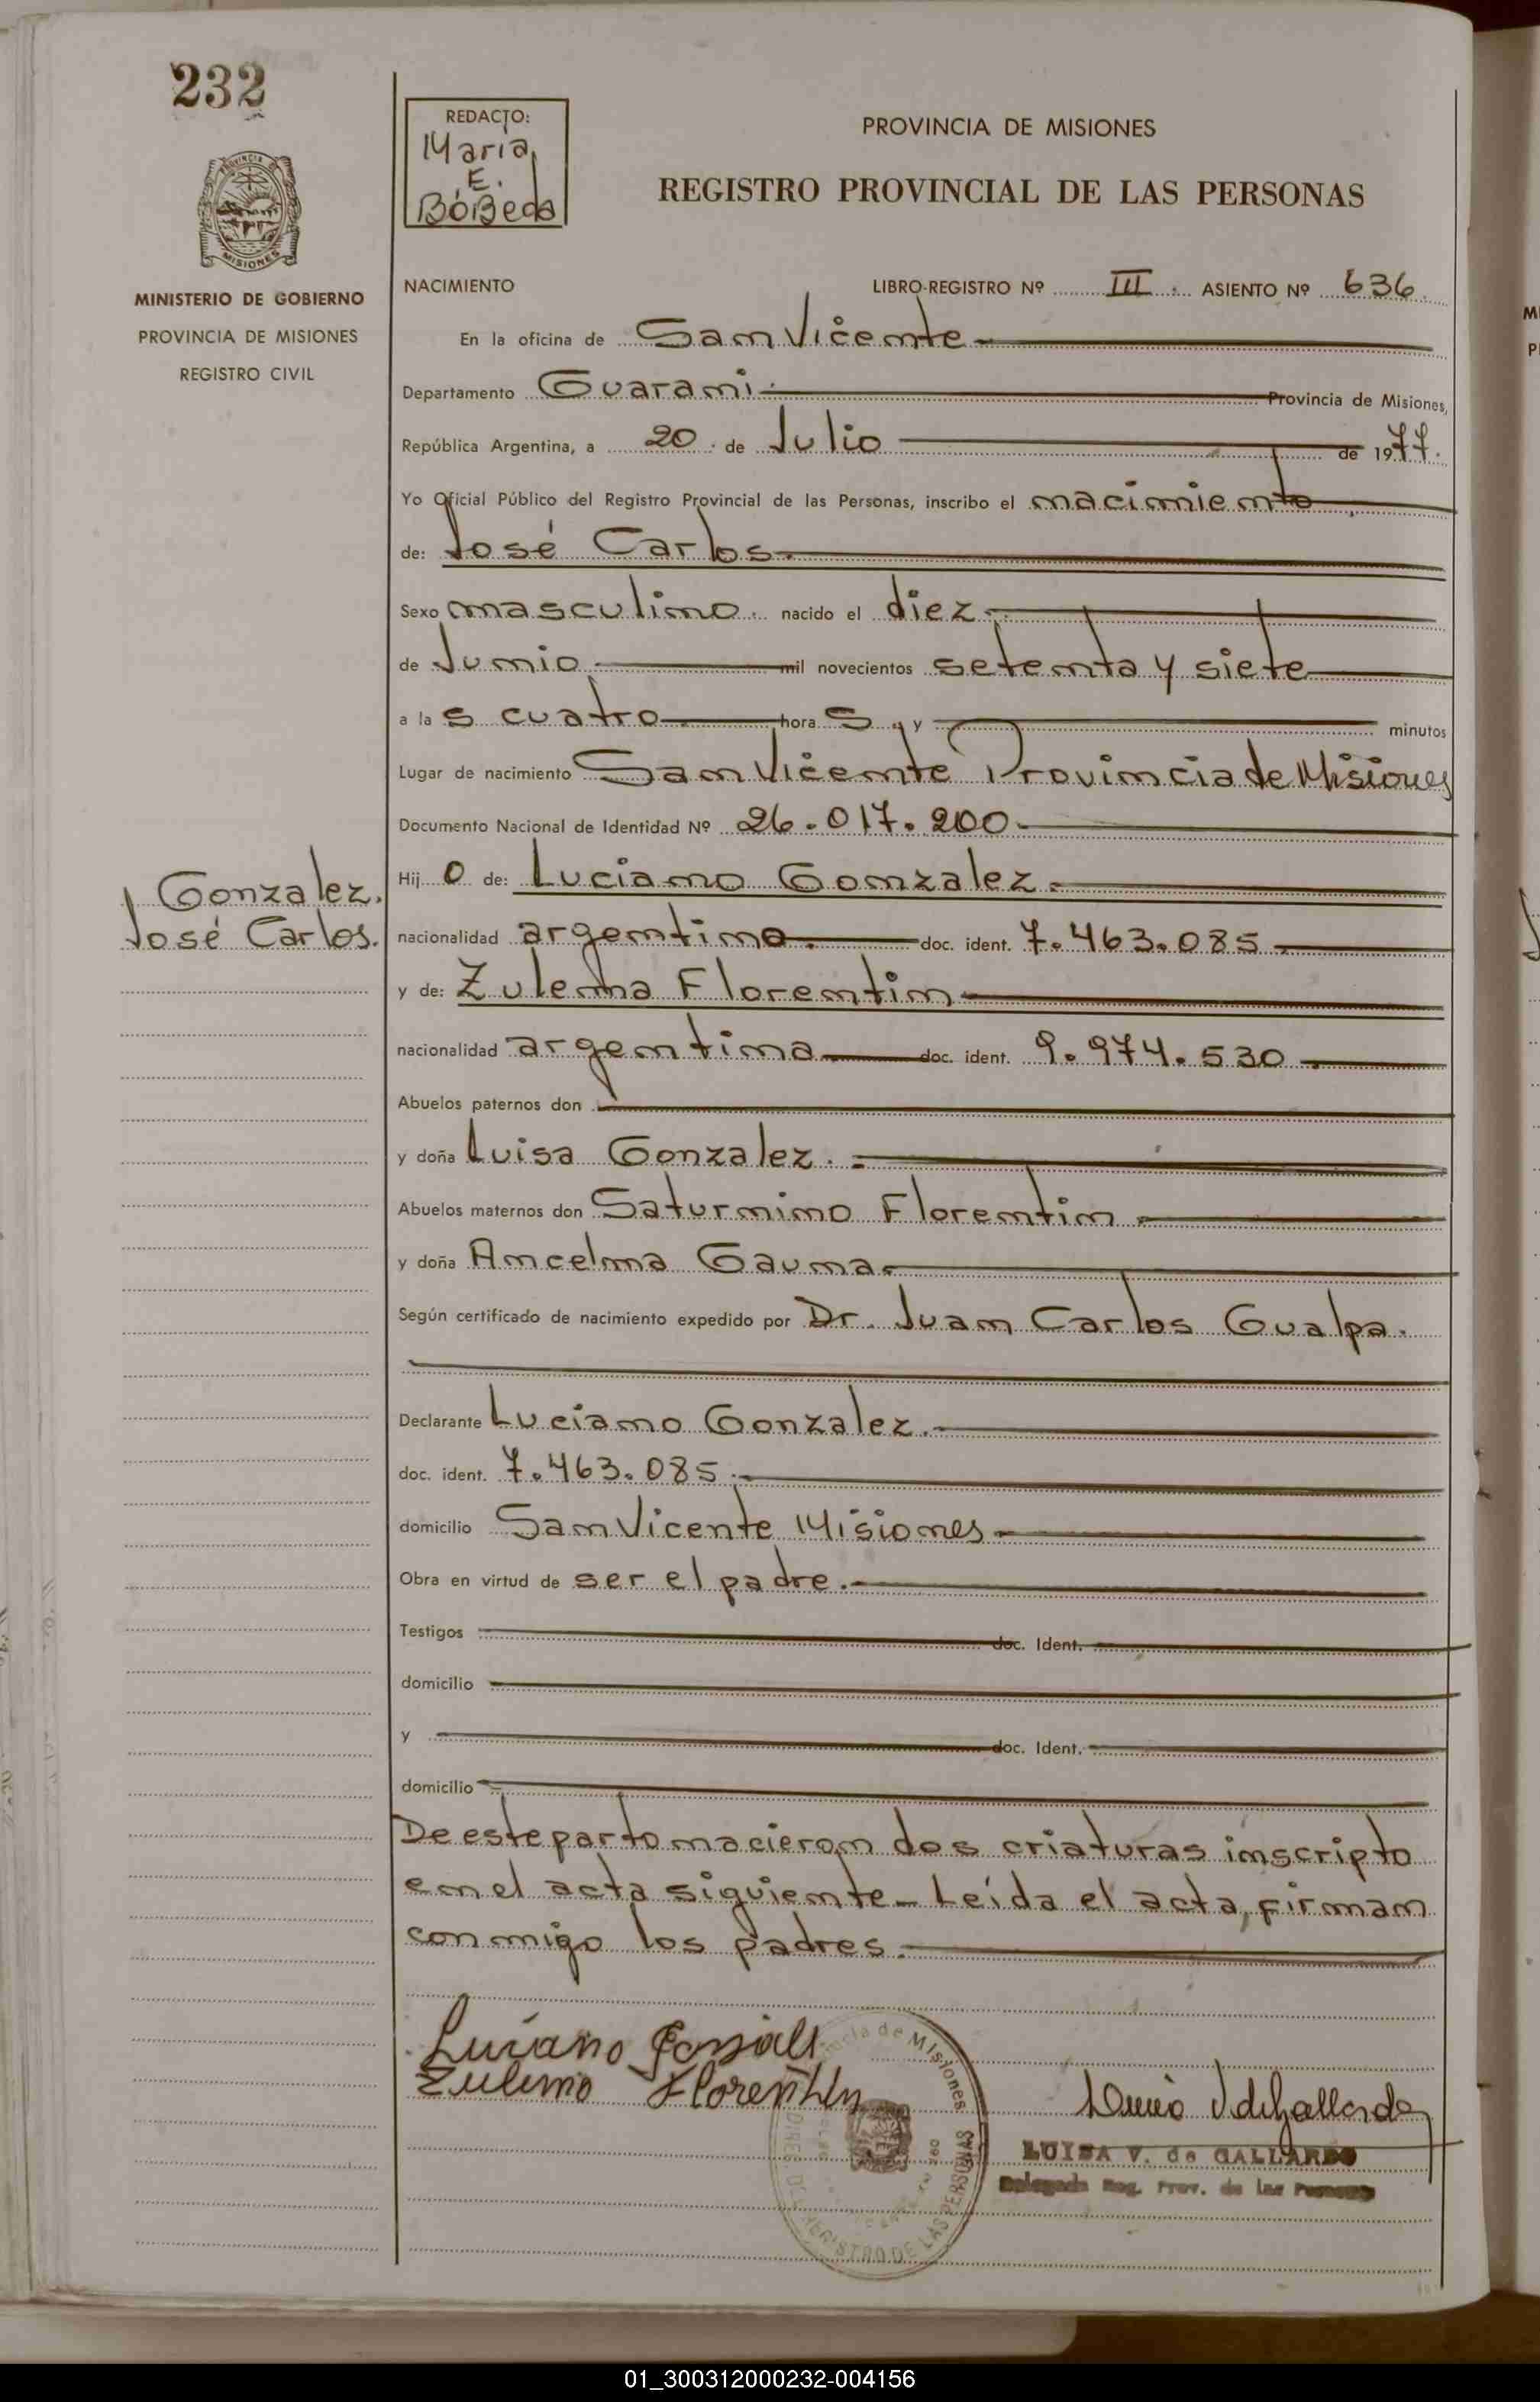 232
REDACTO:
Maria
E.
BóBeda
PROVINCIA DE MISIONES
REGISTRO PROVINCIAL DE LAS PERSONAS
PROVINCIA DE
MISIONES
MINISTERIO DE GOBIERNO
PROVINCIA DE MISIONES
REGISTRO CIVIL
NACIMIENTO LIBRO-REGISTRO Nº III. ASIENTO Nº 636
En la oficina de San Vicente
Departamento Guarani. Provincia de Misiones,
República Argentina, a 20. de Julio de 1977.
Yo Oficial Público del Registro Provincial de las Personas, inscribo el nacimiento
de: José Carlos.
Sexo masculino. nacido el diez
de Junio mil novecientos setenta y siete
a las cuatro horas y minutos
Lugar de nacimiento San Vicente Provincia de Misiones
Documento Nacional de Identidad Nº 26.017.200
Hijo de: Luciano Gonzalez.
Gonzalez.
José Carlos.
nacionalidad argentino. doc. ident. 7.463.085
y de: Zulema Florentin
nacionalidad argentina doc. ident. 9.974.530
Abuelos paternos don
y doña Luisa Gonzalez.
Abuelos maternos don Saturnino Florentin
y doña Ancelma Gauna
Según certificado de nacimiento expedido por Dr. Juan Carlos Gualpa.
Declarante Luciano Gonzalez.
doc. ident. 7.463.085
domicilio San Vicente Misiones
Obra en virtud de ser el padre.
Testigos doc. Ident.
domicilio
y doc. Ident.
domicilio
De este parto nacieron dos criaturas inscripto
en el acta siguiente- Leída el acta, firman
conmigo los padres.
Luciano
Zulema Florentin
LUISA V. de GALLARDO
Delegada Reg. Prov. de las Personas
de Misiones
REGISTRO DE LAS PERSONAS
01_300312000232-004156